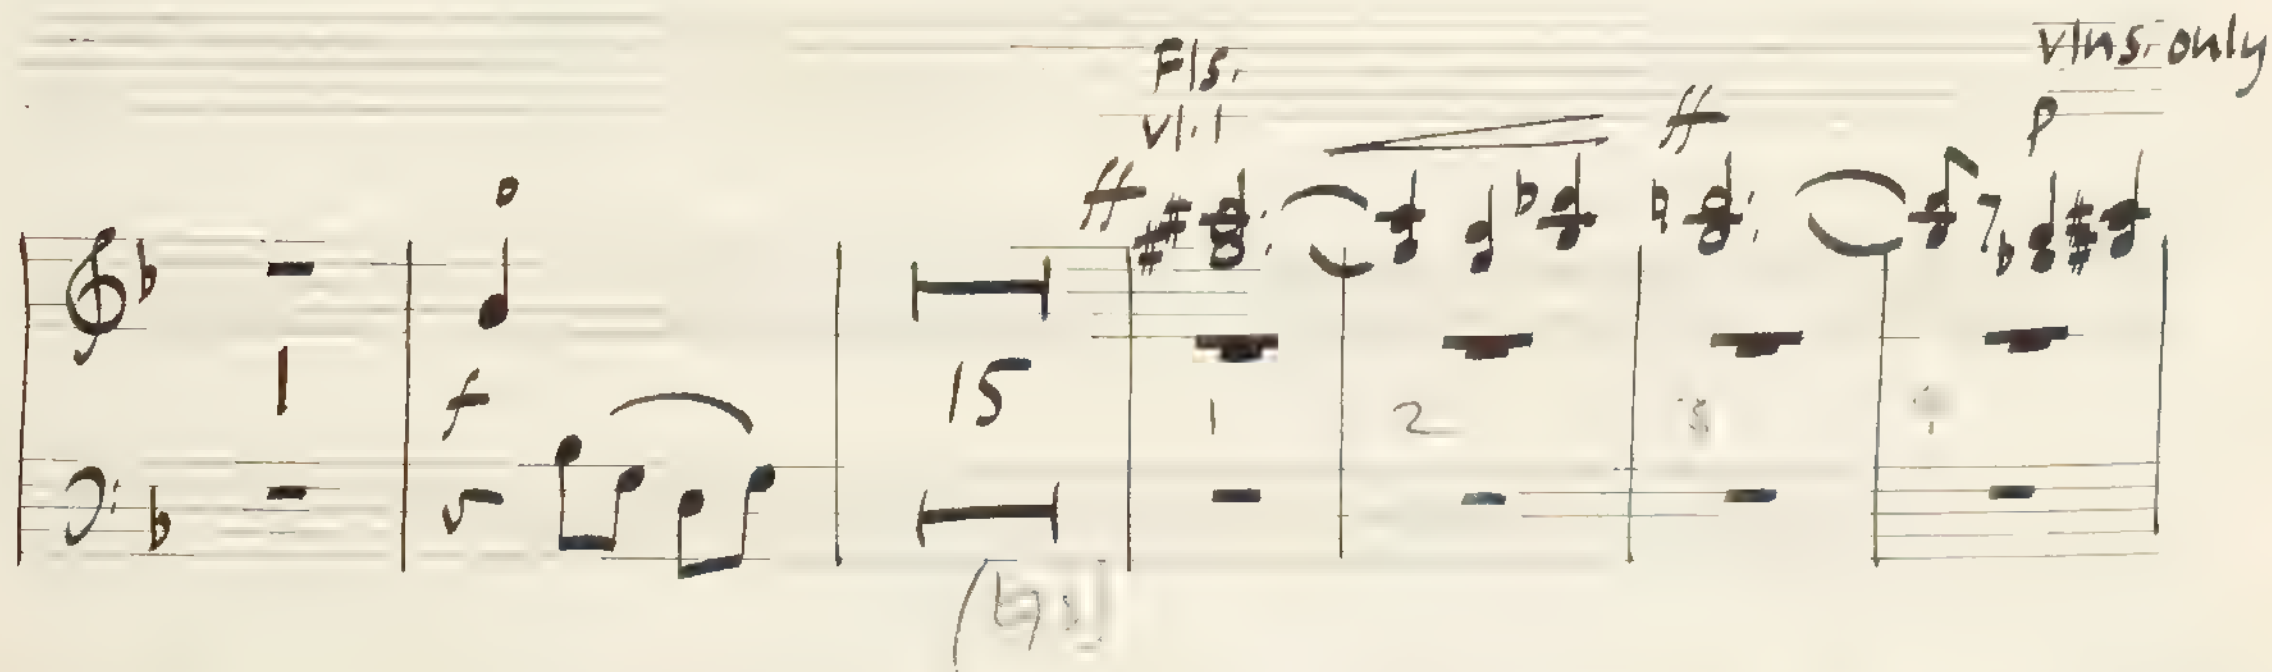 Fls.
vl. 1
vlns. only
ff
ff
p
1
f
15
1
2